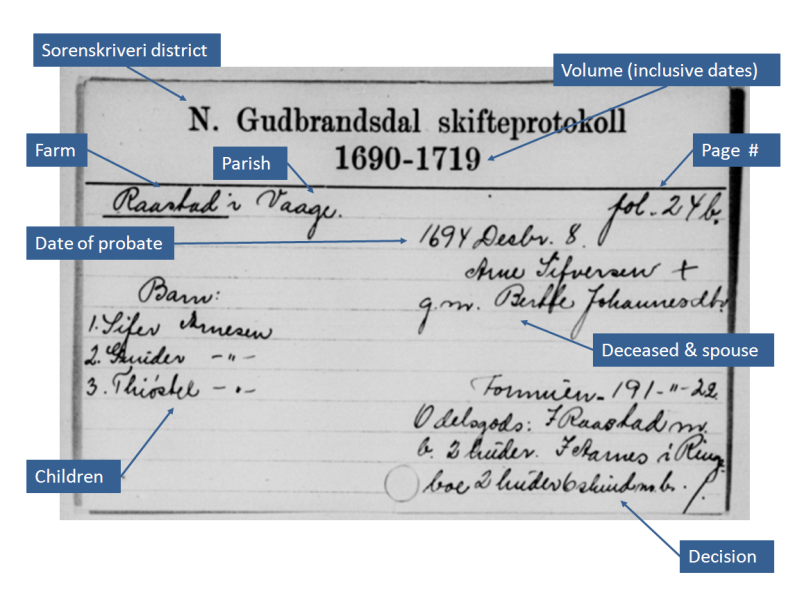 Sorenskriveri district
Volume (inclusive dates)
N. Gudbrandsdal skifteprotokoll
Farm
Parish
1690-1719
Page #
Raastad i Vaage.
fol. 24b.
Date of probate
1694 Desbr. 8.
Arne Sifversen +
Barn:
g. m. Berthe Johannesdtr
1. Sifer Arnesen
Deceased & spouse
2. Gunder -"-
3. Thiostel -"-
Formuen - 191-"-22
Odelsgods: I Raastad m.
b. 2 huder. I Aarnes i Ringe
Children
boe 2 huder 6 skind m. b.
Decision